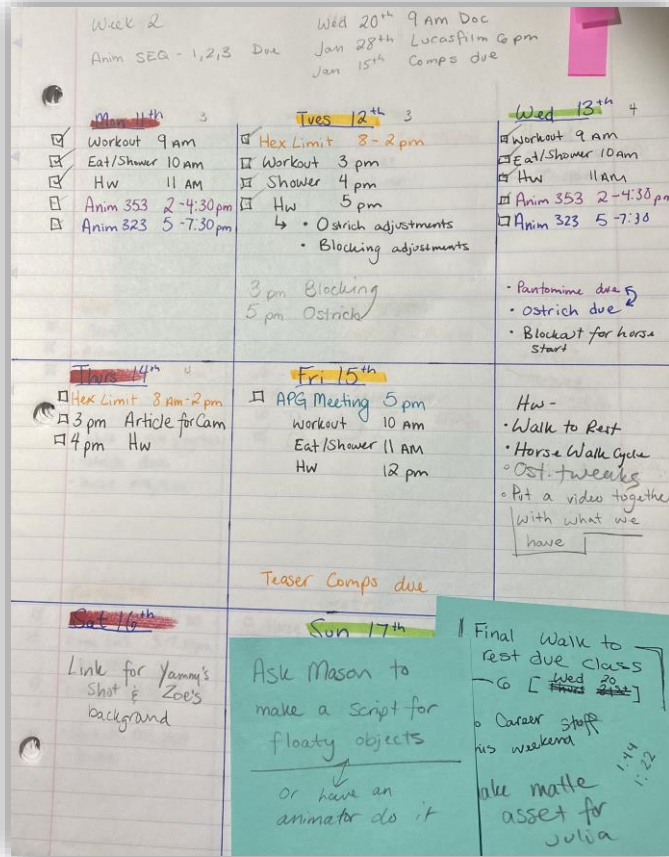 Week 2
Anim SEQ - 1,2,3 Due
Wed 20th 9 Am Doc
Jan 28th Lucasfilm 6 pm
Jan 15th Comps due
Mon 11th 3
Workout 9 AM
Eat/Shower 10 AM
Hw 11 AM
Anim 353 2-4:30pm
Anim 323 5-7:30pm
Tues 12th 3
Hex Limit 8-2pm
Workout 3 pm
Shower 4 pm
Hw 5 pm
↳ • Ostrich adjustments
• Blocking adjustments
3 pm Blocking
5 pm Ostrich
Wed 13th 4
Workout 9 AM
Eat/Shower 10AM
Hw 11AM
Anim 353 2-4:30pm
Anim 323 5-7:30
• Pantomime due
• Ostrich due
• Blockout for horse
start
Thurs 14th
Hex Limit 8 Am-2pm
3 pm Article for Cam
4 pm Hw
Fri 15th
APG Meeting 5 pm
Workout 10 AM
Eat/Shower 11 AM
Hw 12 pm
Teaser Comps due
Hw-
• Walk to Rest
• Horse Walk Cycle
• Ost. tweaks
• Put a video togethe
with what we
have
Sat 16th
Link for Yammy's
Shot & Zoe's
background
Sun 17th
Ask Mason to
make a script for
floaty objects
Or have an
animator do it
Final Walk to
rest due class
6 [Wed 20]
Thurs 21st
o Career Stuff
his weekend
1:44
1:22
ake matte
asset for
Julia